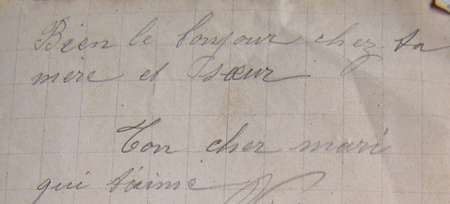 Bien le bonjour chez ta
mère et sœur
Ton cher mari
qui t'aime